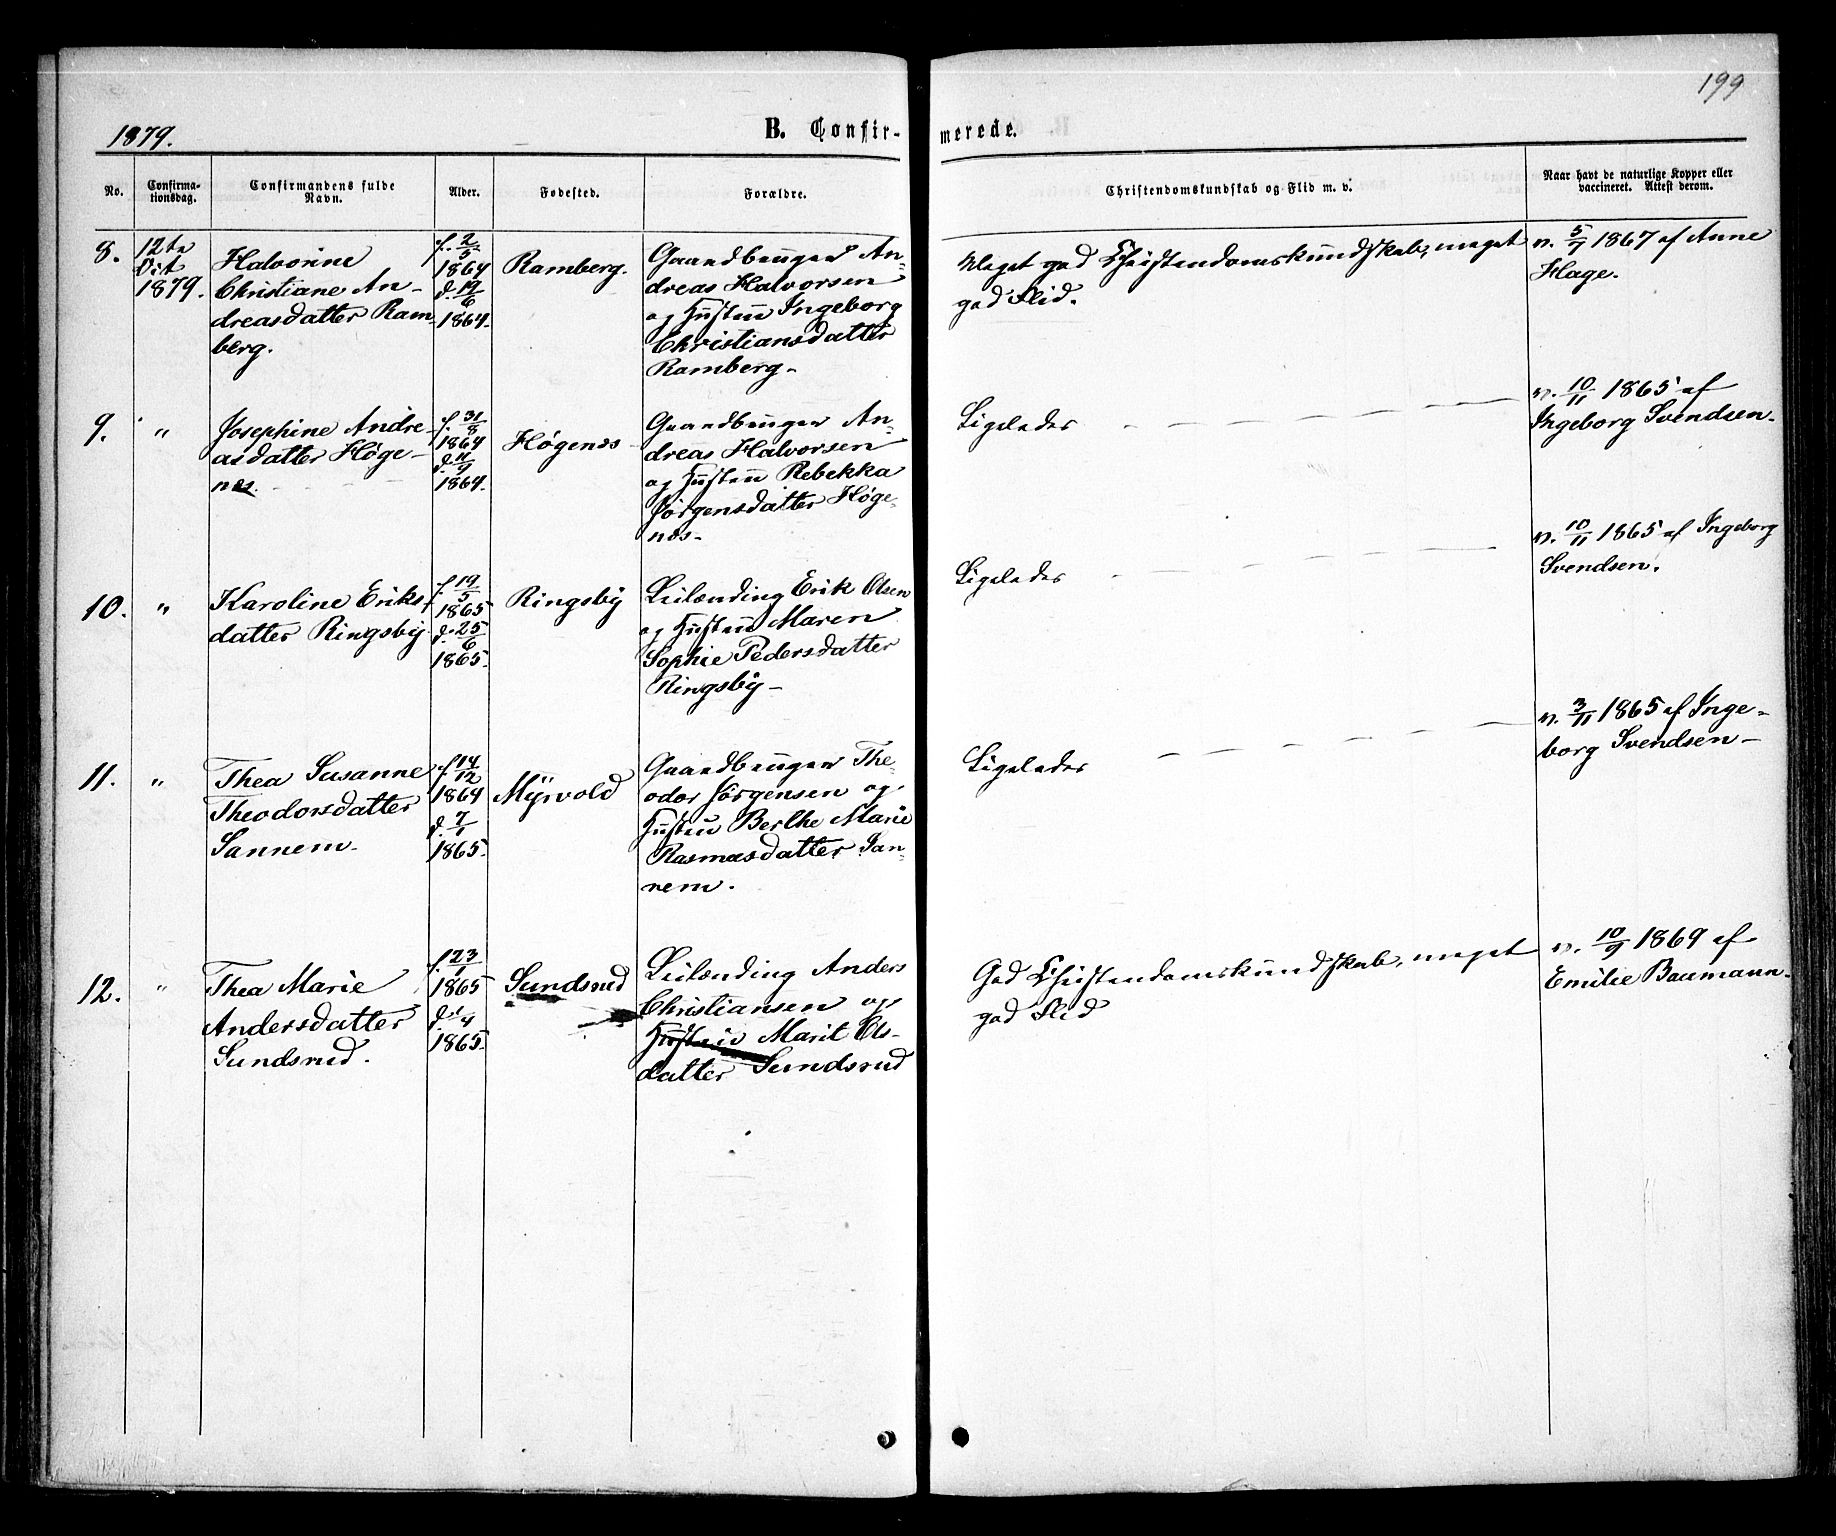 199
1879.
B. Confir-
merede.
No.
Confirma-
tionsdag.
Confirmandens fulde
Navn.
Alder.
Fødested.
Forældre.
Christendomskundskab og Flid m. v.
Naar havt de naturlige Kopper eller
vaccineret. Attest derom.
8.
12te
Oct
1879.
Halvorine
Christiane An-
dreasdatter Ram-
berg.
f. 2/5
1864
d. 19/6
1864.
Ramberg.
Gaardbruger An-
dreas Halvorsen
og Hustru Ingeborg
Christiansdatter
Ramberg-
Meget god Christendomskundskab, meget
god Flid.
v. 5/7 1867 af Anne
Flage.
9.
"
Josephine Andre-
asdatter Høge-
næs.
f. 31/8
1864
d. 11/9
1864.
Høgenæs
Gaardbruger An-
dreas Halvorsen
og Hustru Rebekka
Jörgensdatter Høge-
næs-
Ligeledes
v. 10/11 1865 af
Ingeborg Svendsen.
10.
"
Karoline Eriks-
datter Ringsby
f. 19/5
1865
d. 25/6
1865.
Ringsby
Leilænding Erik Olsen
og Hustru Maren
Sophie Pedersdatter
Ringsby-
Ligeledes
v. 10/11 1865 af Ingeborg
Svendsen.
11.
"
Thea Susanne
Theodorsdatter
Sannem.
f. 14/12
1864
d. 7/1
1865.
Myrvold
Gaardbruger The-
odor Jörgensen og
Hustru Berthe Marie
Rasmusdatter San-
nem.
Ligeledes
v. 3/11 1865 af Inge-
borg Svendsen-
12.
"
Thea Marie
Andersdatter
Sundsrud.
f. 23/1
1865
d. 1/4
1865.
Sundsrud
Leilænding Anders
Christiansen og
Hustru Marit Ols-
datter Sundsrud
God Christendomskundskab, meget
god Flid
v. 10/9 1869 af
Emilie Baumann.